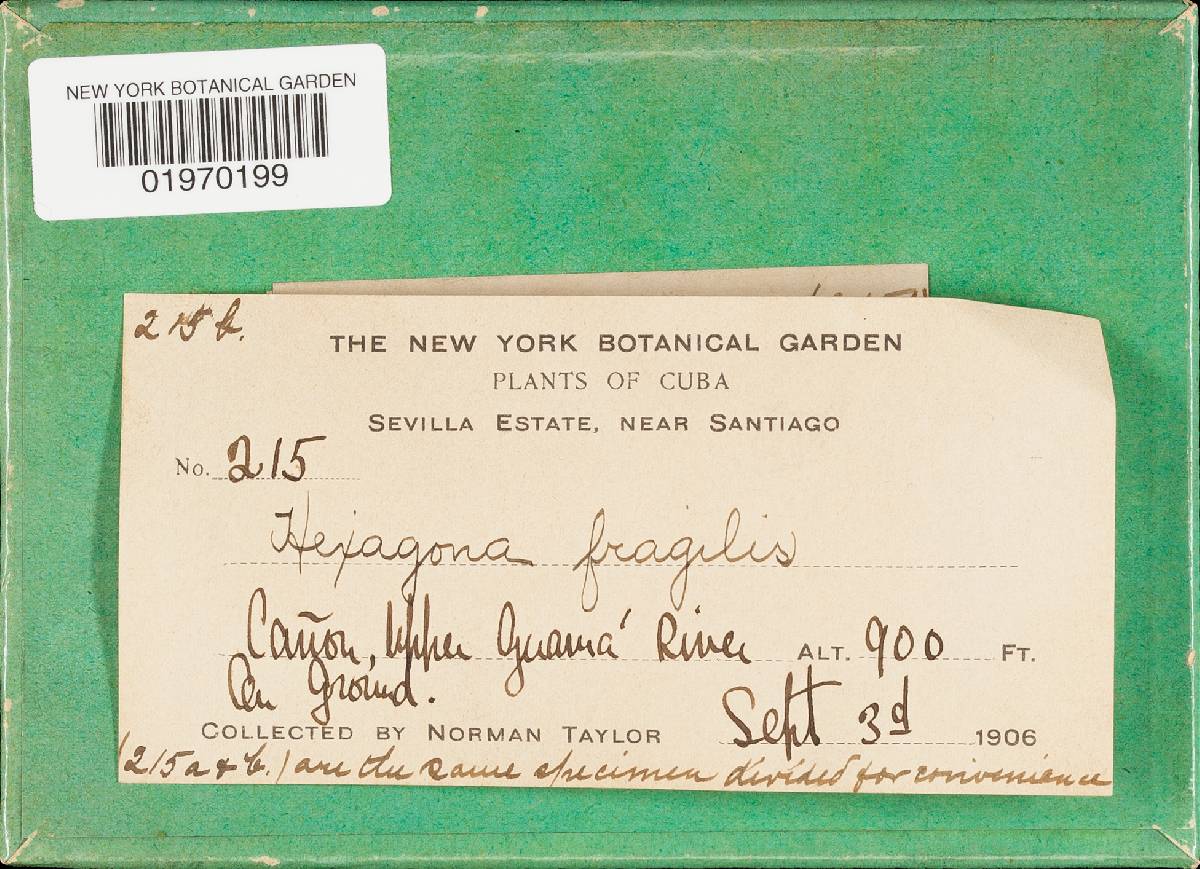 NEW YORK BOTANICAL GARDEN
01970199
215 b.
THE NEW YORK BOTANICAL GARDEN
PLANTS OF CUBA
SEVILLA ESTATE, NEAR SANTIAGO
No. 215
Hexagona fragilis
Cañon, Upper Guamá River ALT. 900 FT.
On Ground.
Sept 3d 1906
COLLECTED BY NORMAN TAYLOR
(215 a & b.) are the same specimen divided for convenience